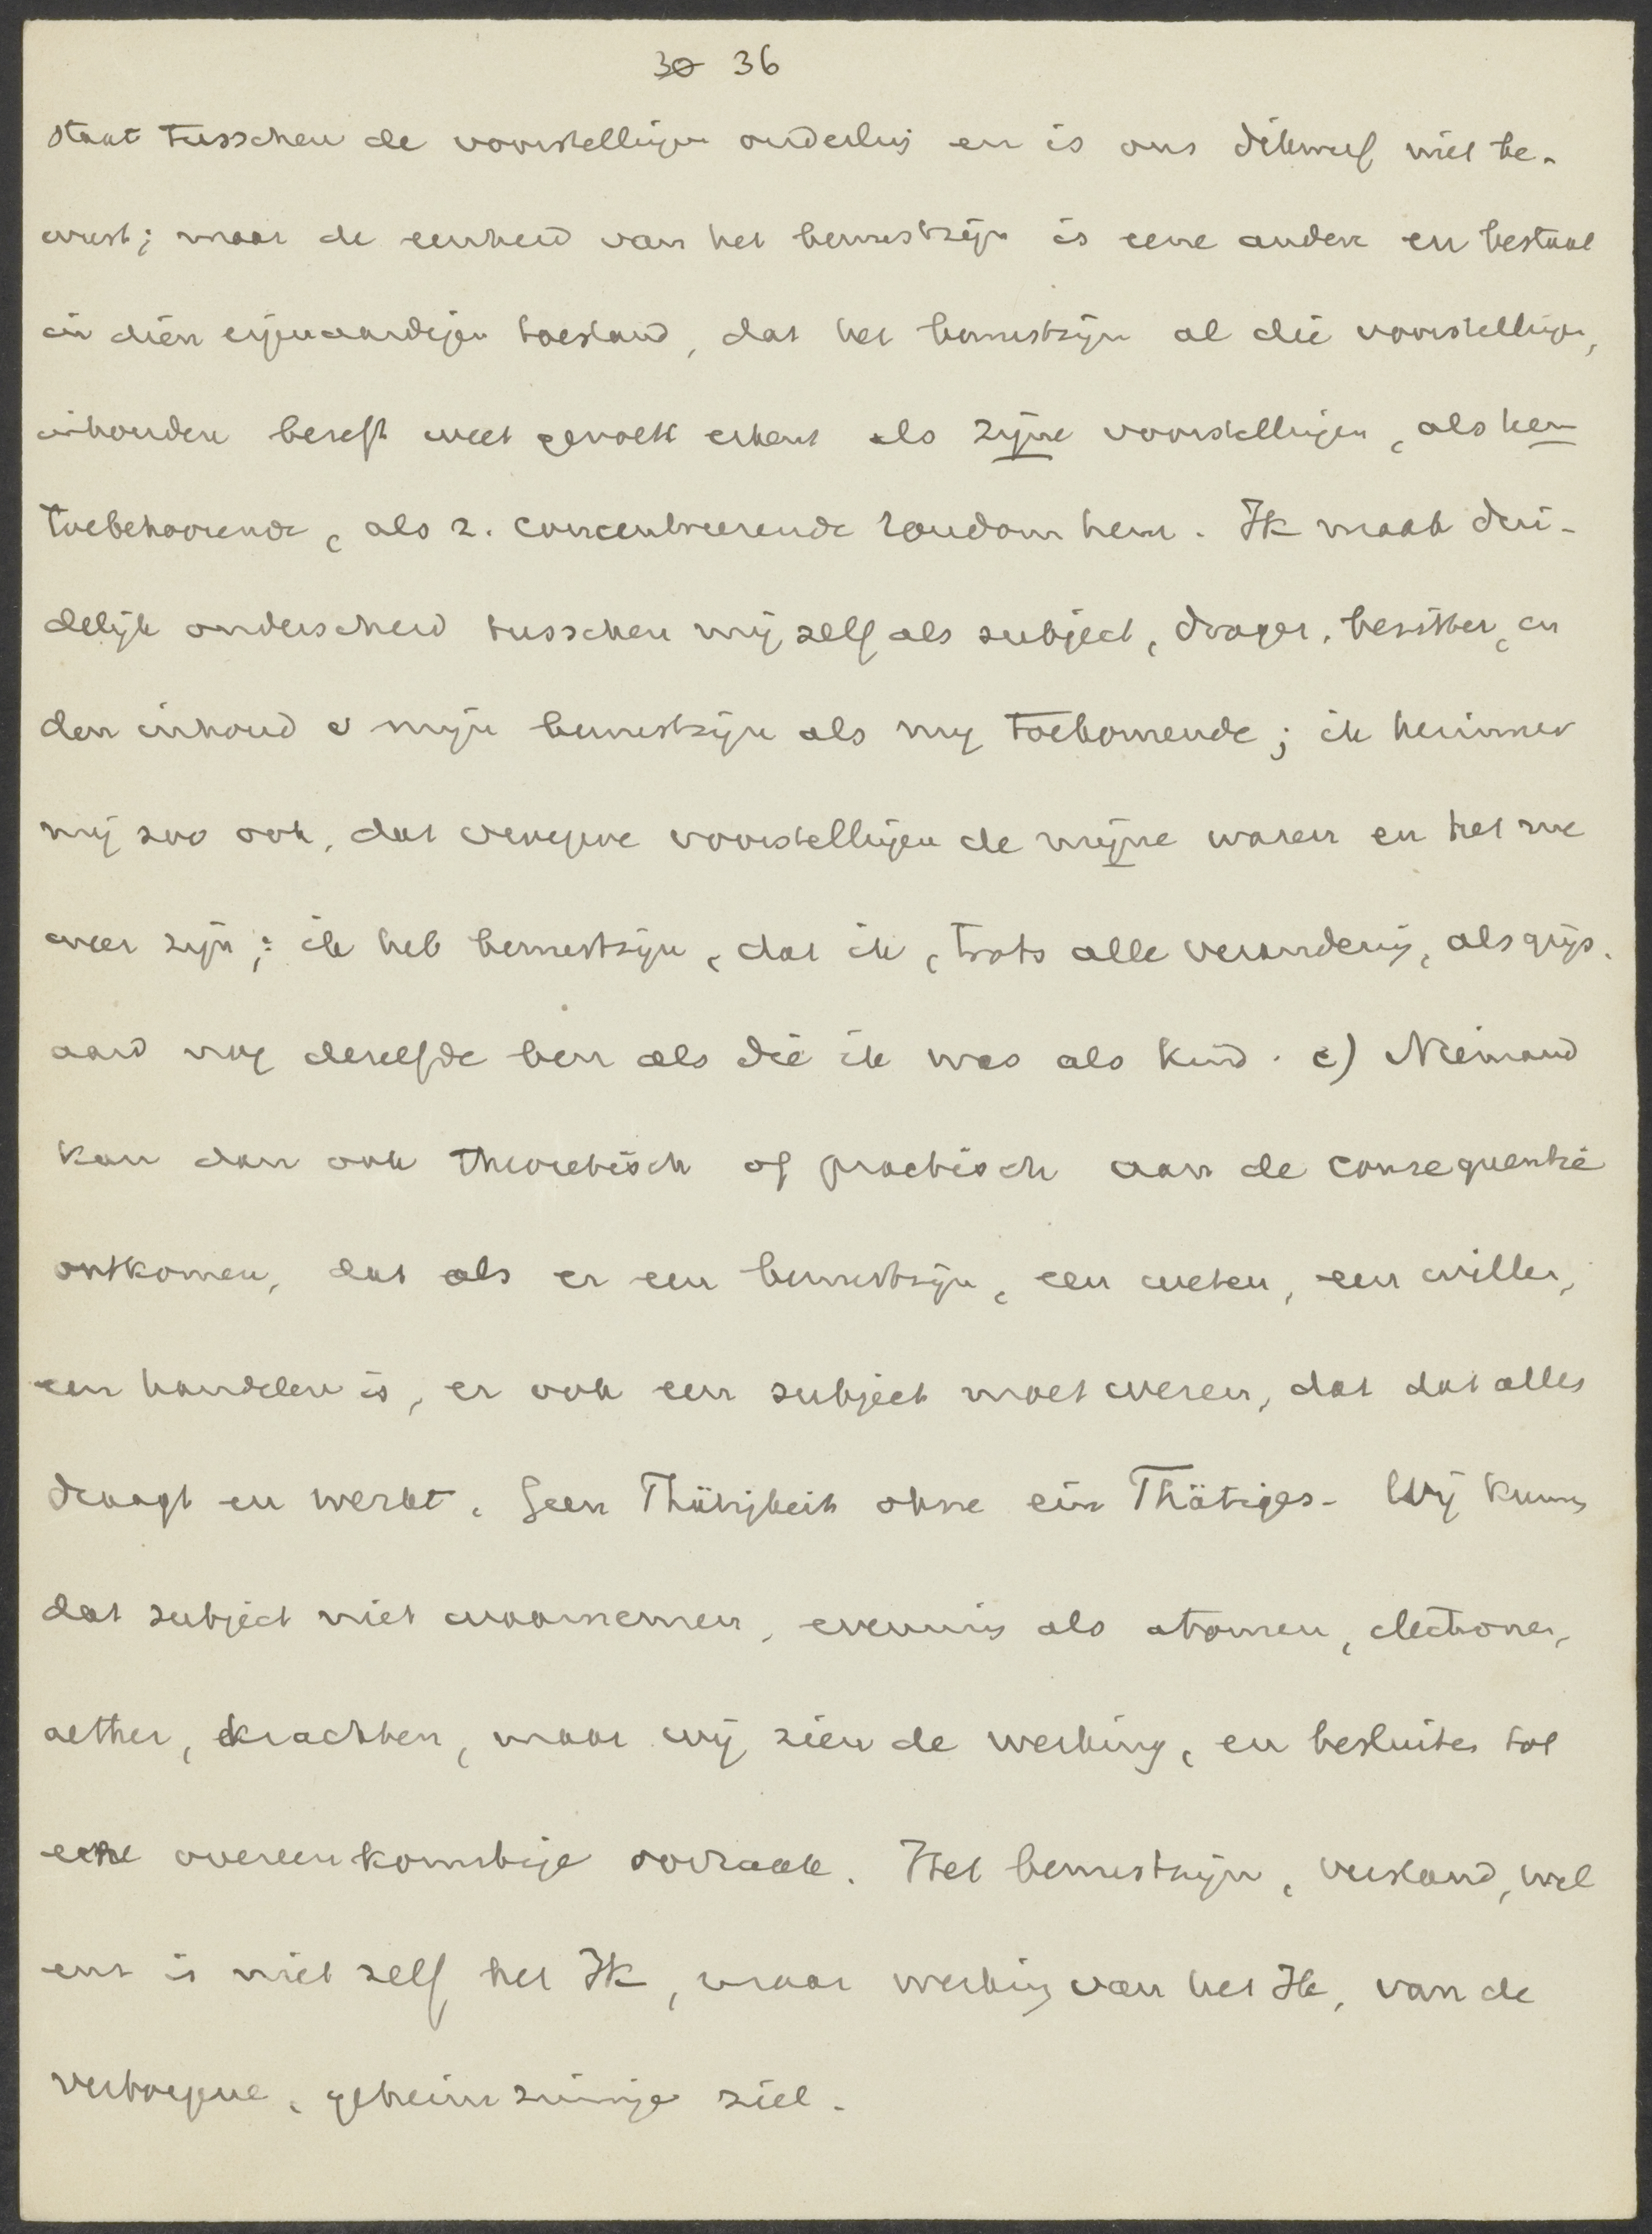 30 36
staat tusschen de voorstellingen onderling en is ons dikwerf niet be-
wust; maar de eenheid van het bewustzijn is eene andere en bestaat
in dien eigenaardigen toestand, dat het bewustzijn al die voorstellingen,
inhouden beseft weet gevoelt erkent als zijne voorstellingen, als hem
toebehoorende, als z. concentreerende rondom hem. Ik maak dui-
delijk onderscheid tusschen mij zelf als subject, drager, bezitter, en
den inhoud v mijn bewustzijn als mij toekomende; ik herinner
mij zoo ook, dat vroegere voorstellingen de mijne waren en het nu
weer zijn; ik heb bewustzijn, dat ik, trots alle verandering, als grijs-
aard nog dezelfde ben als die ik was als kind. c) Niemand
kan dan ook theoretisch of practisch aan de consequentie
ontkomen, dat als er een bewustzijn, een weten, een willen,
een handelen is, er ook een subject moet wezen, dat dat alles
draagt en werkt. Geen Thätigkeit ohne ein Thätiges. Wij kunnen
dat subject niet waarnemen, evenmin als atomen, electronen,
aether, krachten, maar wij zien de werking, en besluiten tot
eene overeenkomstige oorzaak. Het bewustzijn, verstand, wil
enz is niet zelf het Ik, maar werking van het Ik, van de
verborgene, geheimzinnige ziel.